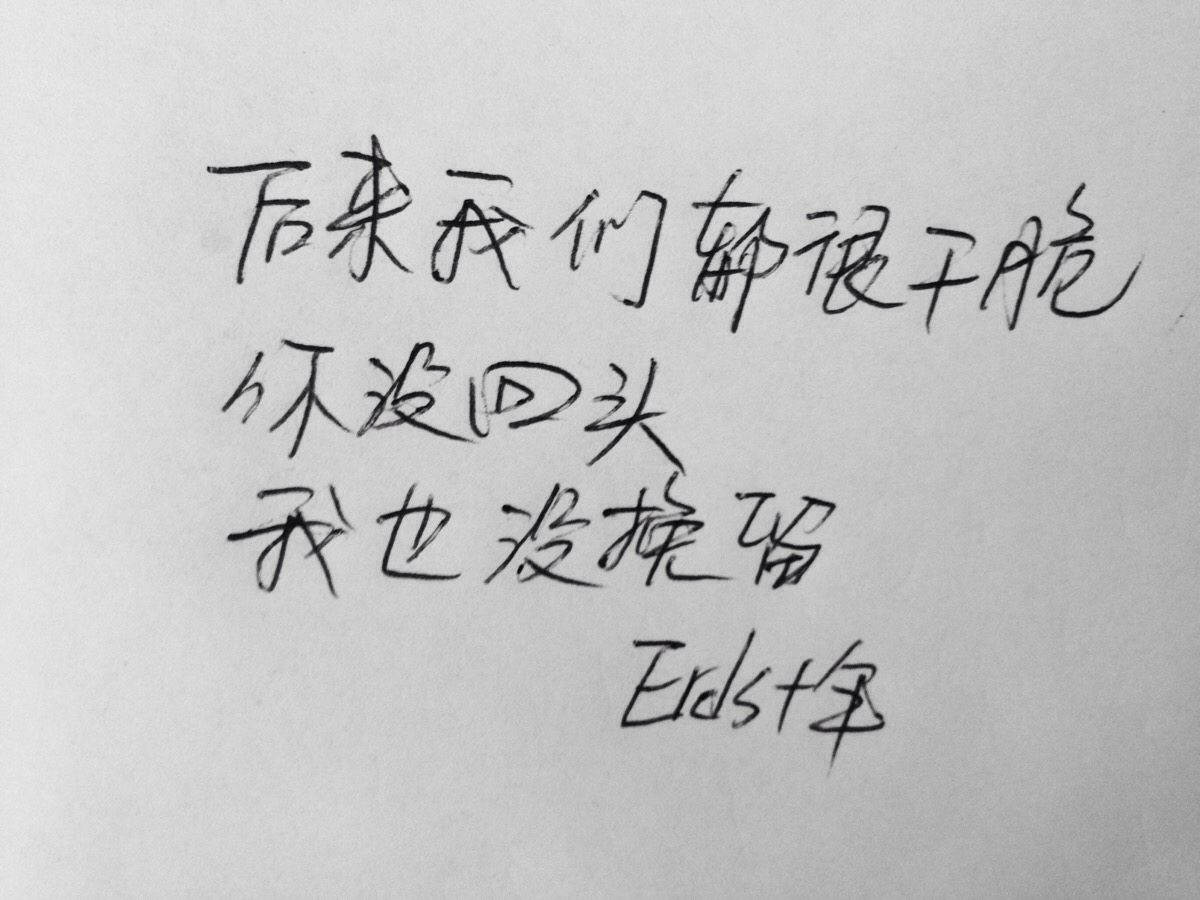 后来我们都很干脆
你没回头
我也没挽留
Erds十年